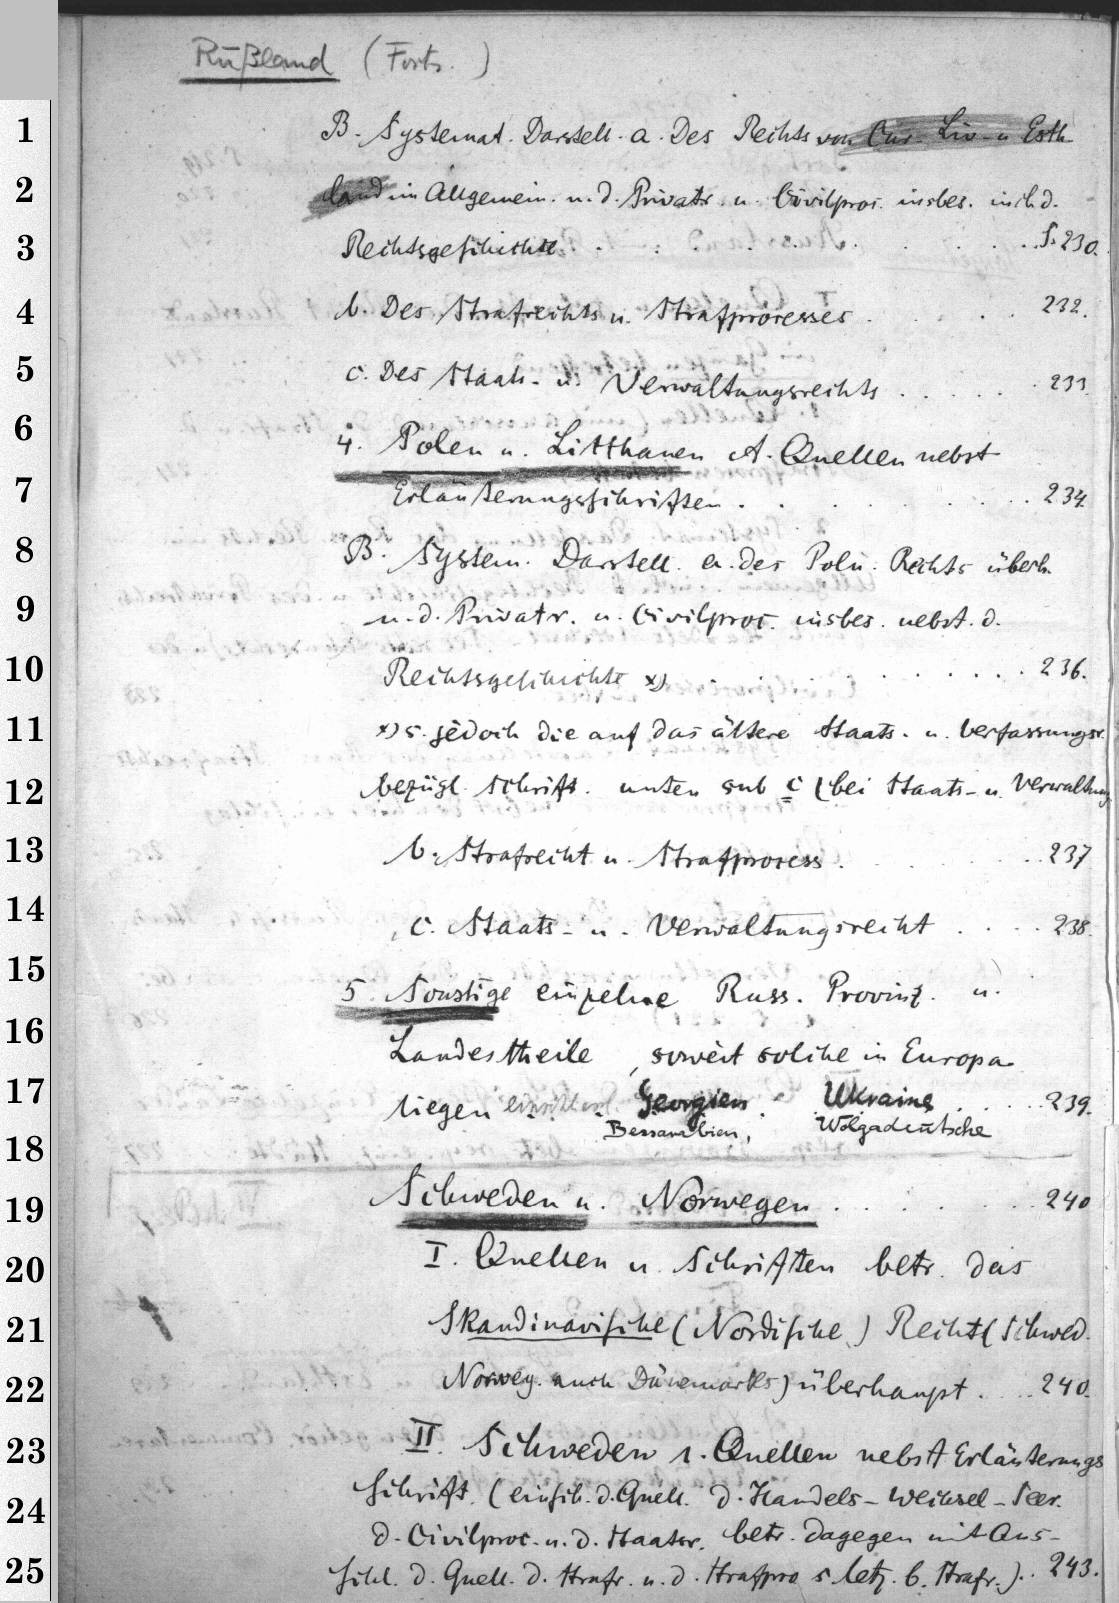 Rußland (Forts.)
1 B. Systemat. Darstell. a. Des Rechts von Cur- Liv- u Esth
2 land im Allgemein. u. d. Privatr. u. Civilproc. insbes. incl. d.
3 Rechtsgeschichte . . . . . . . S. 230.
4 b. Des Strafrechts u. Strafprocesses . . . . 232.
5 c. Des Staats- u. Verwaltungsrechts . . . . . . 233
6 4. Polen u. Litthauen A. Quellen nebst
7 Erläuterungsschriften . . . . . . . 234
8 B. System. Darstell. a. des Poln. Rechts überh.
9 u. d. Privatr. u. Civilproc. insbes. nebst. d.
10 Rechtsgeschichte x) . . . . . . . 236.
11 x) s. jedoch die auf das ältere Staats- u. Verfassungsr.
12 bezügl. Schrift. unten sub c (bei Staats- u. Verwaltung
13 b. Strafrecht u. Strafprocess . . . . . . 237
14 c. Staats- u. Verwaltungsrecht . . . . 238.
15 5. Sonstige einzelne Russ. Provinz. u.
16 Landestheile, soweit solche in Europa
17 liegen Georgien. Ukraine . . . . . 239.
18 Bessarabien, Wolgadeutsche
19 Schweden u. Norwegen . . . . . . . 240
20 I. Quellen u. Schriften betr. das
21 Skandinavische (Nordische) Recht (Schwed.
22 Norweg. auch Dänemarks) überhaupt . . . . 240.
23 II. Schweden 1. Quellen nebst Erläuterungs
24 schrift. (einsch. d. Quell. d. Handels- Wechsel- Seer.
d. Civilproc. u. d. Staatsr. betr. dagegen mit Aus-
25 schl. d. Quell. d. Strafr. u. d. Strafpro s. letz. b. Strafr.). . 243.